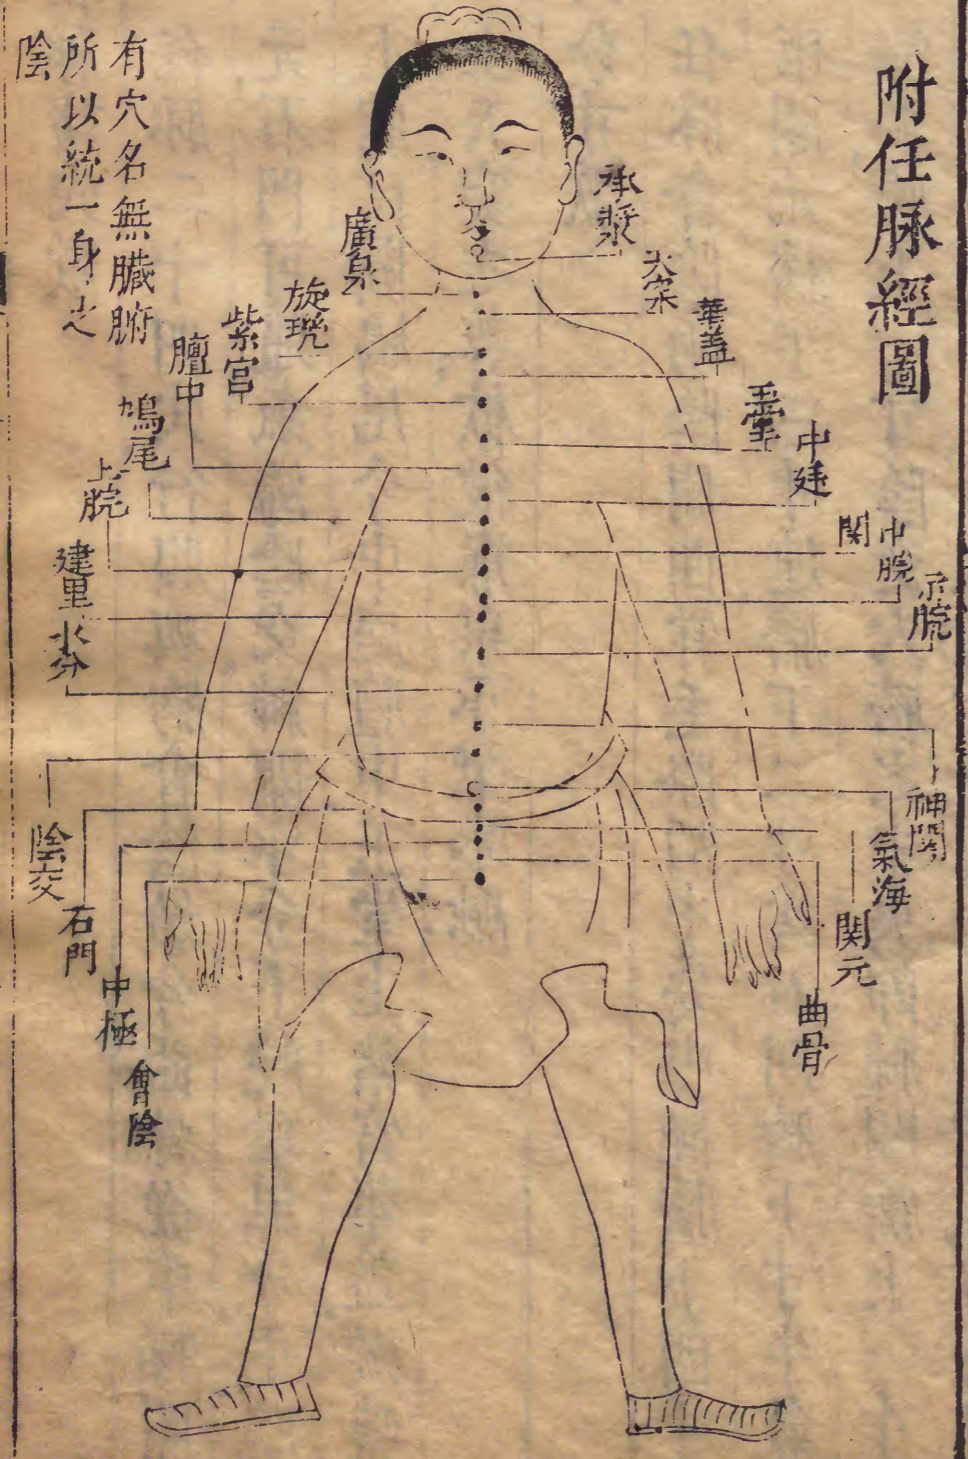 附任脉經圖
承漿
天突
華盖
玉堂
中廷
関
中脘
下脘
神闕
氣海
関元
曲骨
廣泉
旋璣
紫宫
膻中
鳩尾
上脘
建里
水分
陰交
石門
中極
會陰
有穴名無臟腑
所以統一身之
陰